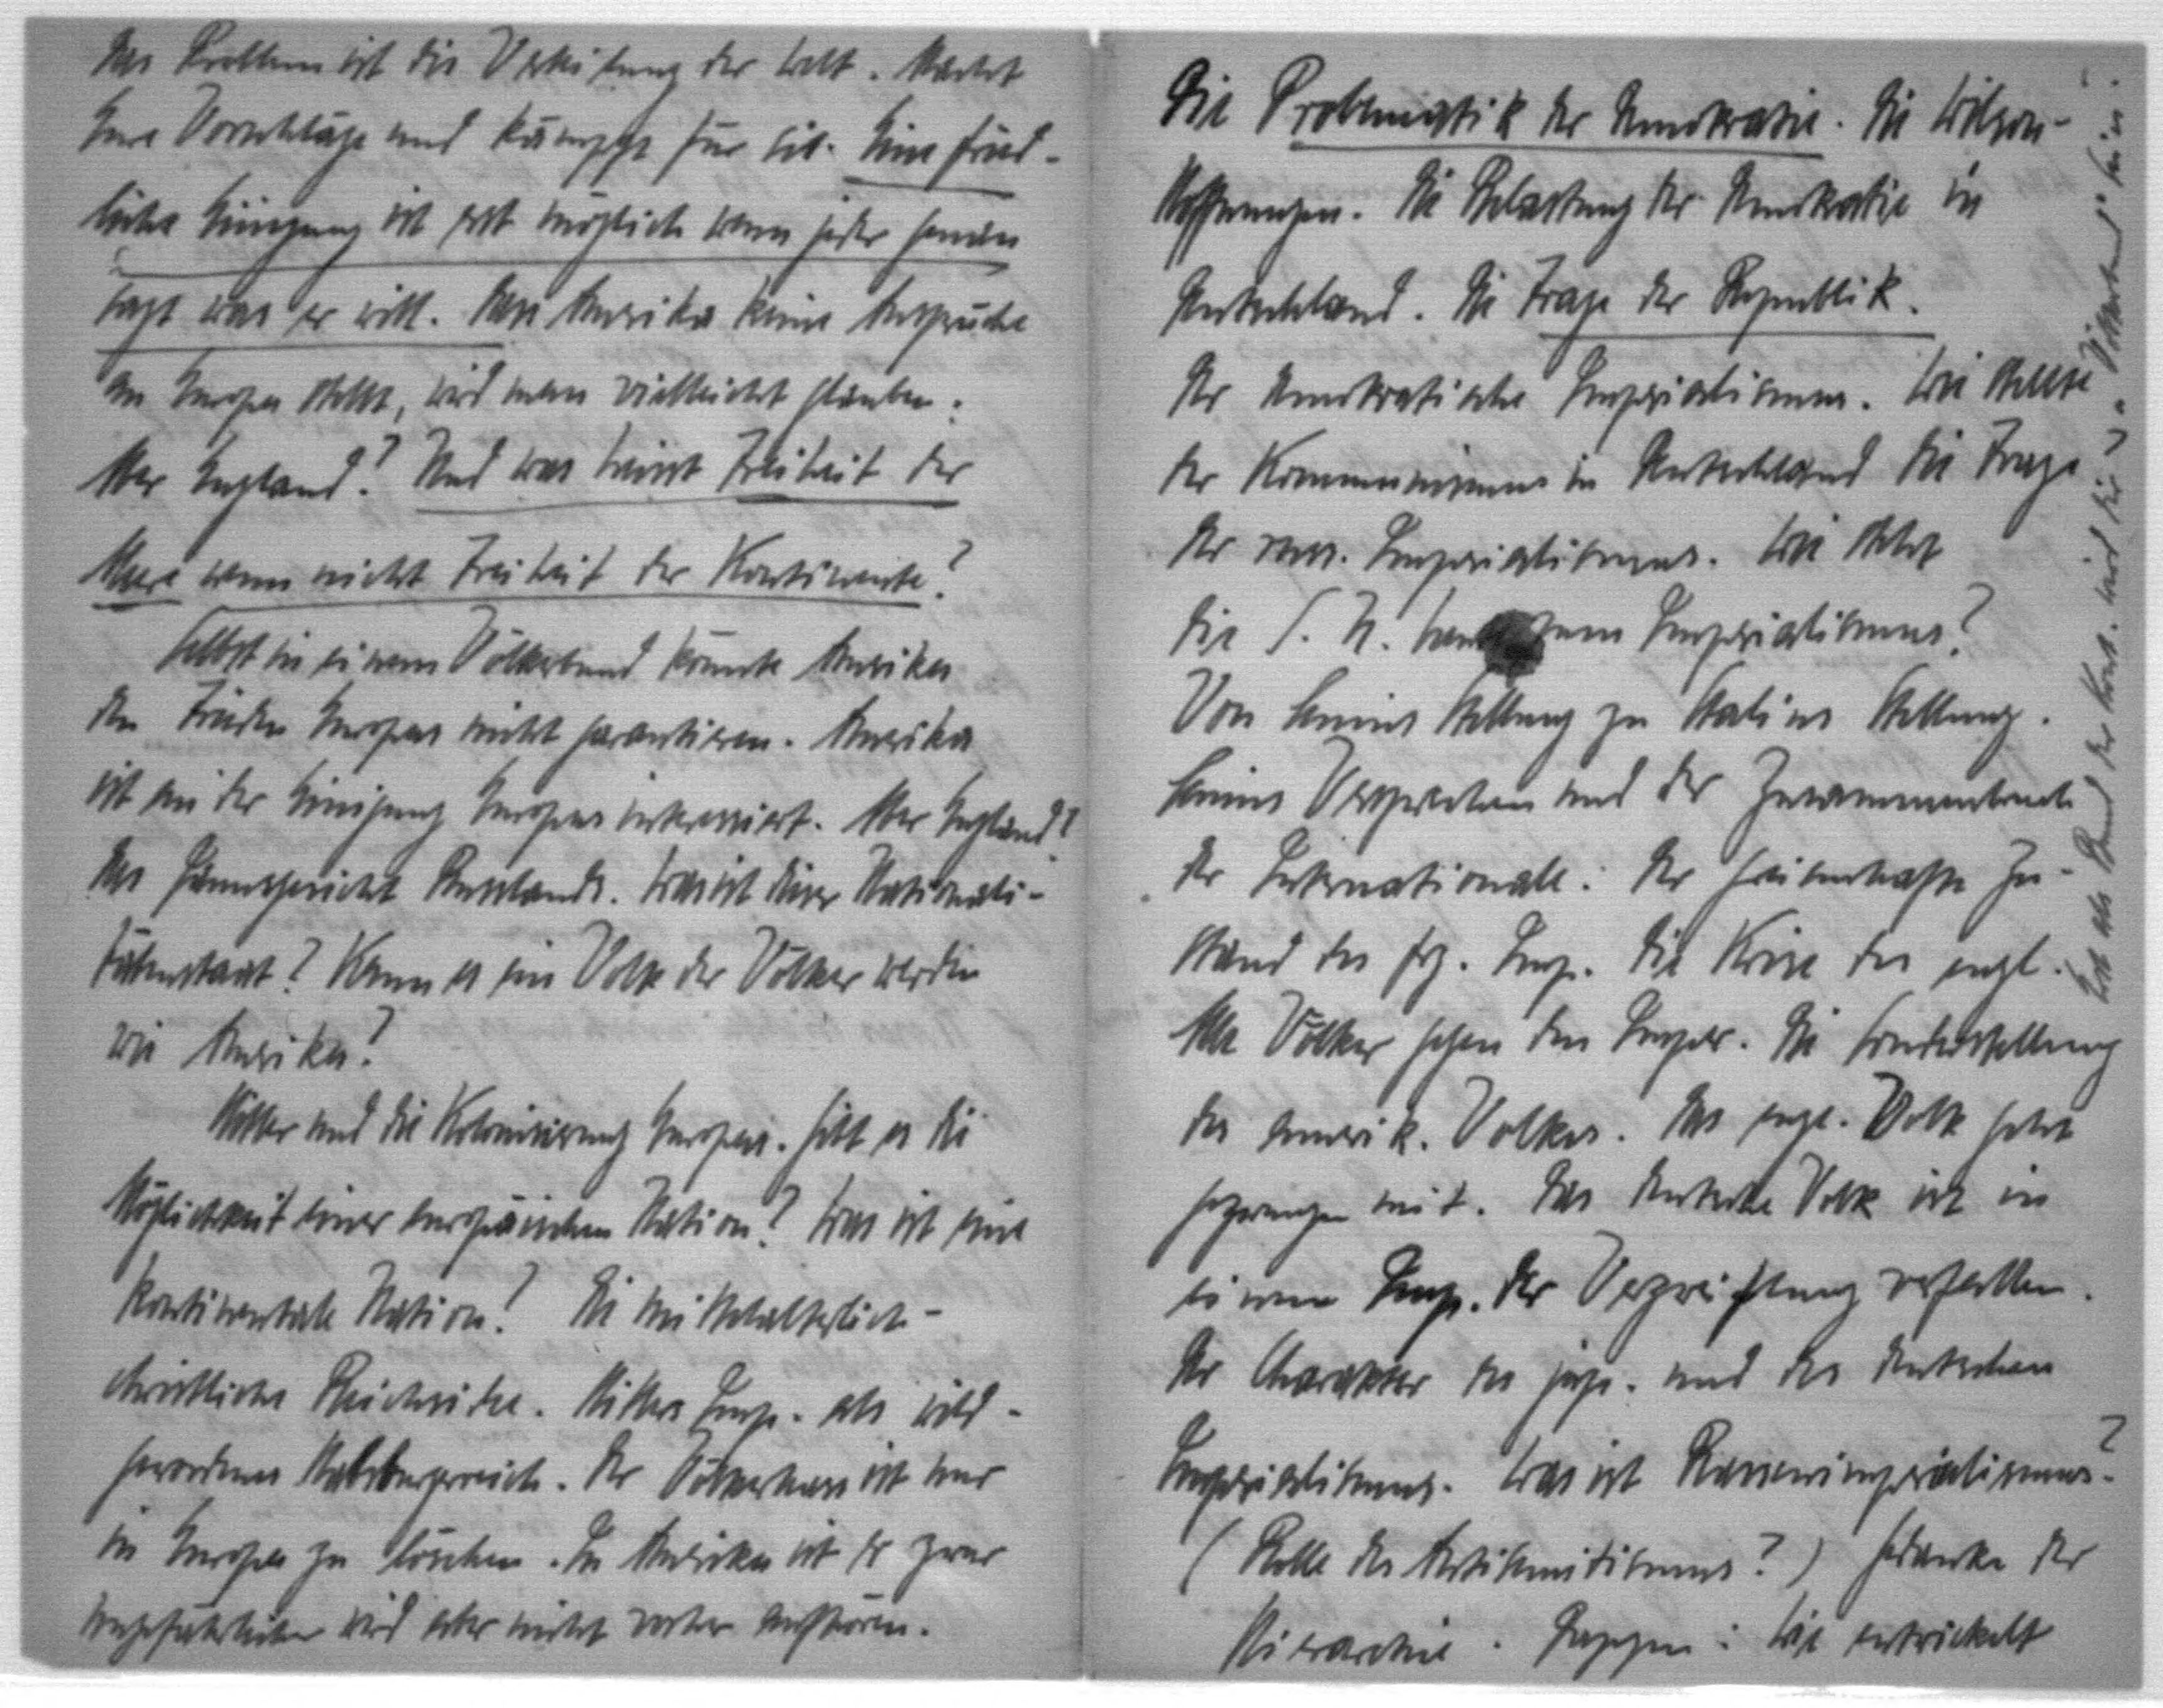 Das Problem ist die Verteilung der Welt. Macht
Eure Vorschläge und kämpft für sie. Eine fried-
liche Einigung ist erst möglich wenn jeder genau
sagt was er will. Dass Amerika keine Ansprüche
an Europa stellt, wird man vielleicht glauben.
Aber England? Und was heisst Freiheit der
Meere wenn nicht Freiheit der Kontinente?
Selbst in einem Völkerbund könnte Amerika
den Frieden Europas nicht garantieren. Amerika
ist an der Einigung Europas interessiert. Aber England?
Das Russlands. Was ist dieser Nationali-
tätenstaat? Kann es ein Volk der Völker werden
wie Amerika?
Hitler und die Kolonisierung Europas. Gibt es die
Möglichkeit einer europäischen Nation? Was ist eine
kontinentale Nation? Die mittelalterlich-
christliche Reichsidee. Hitlers Imp. als wild-
gewordenes Habsburgerreich. Der Völkerhass ist nur
in Europa zu löschen. In Amerika ist er zwar
ungefährlicher wird aber nicht vorher aufhören.
Die Problematik der Demokratie. Die Wilson-
Hoffnungen. Die Belastung der Demokratie in
Deutschland. Die Frage der Republik.
Der demokratische Imperialismus. Wie stellte
der Kommunismus in Deutschland die Frage
des russ. Imperialismus. Wie steht
die S. U. zum Imperialismus?
Von Lenins Stellung zu Stalins Stellung.
Lenins Versprechen und der Zusammenbruch
der Internationale: Der Zu-
stand des frz. Imp. Die Krise des engl.
Alle Völker gegen den Imper. Die Sonderstellung
des amerik. Volkes. Das engl. Volk geht
gezwungen mit. Das deutsche Volk ist in
einem Imp. der Verzweiflung verfallen.
Der Charakter des jap. und des deutschen
Imperialismus. Was ist Rassenimperialismus?
(Rolle des Antisemitismus?) Gedanke der
Hierarchie. : Wie entwickelt
als Bund der Kont. wird der "Völkerbund" sein.